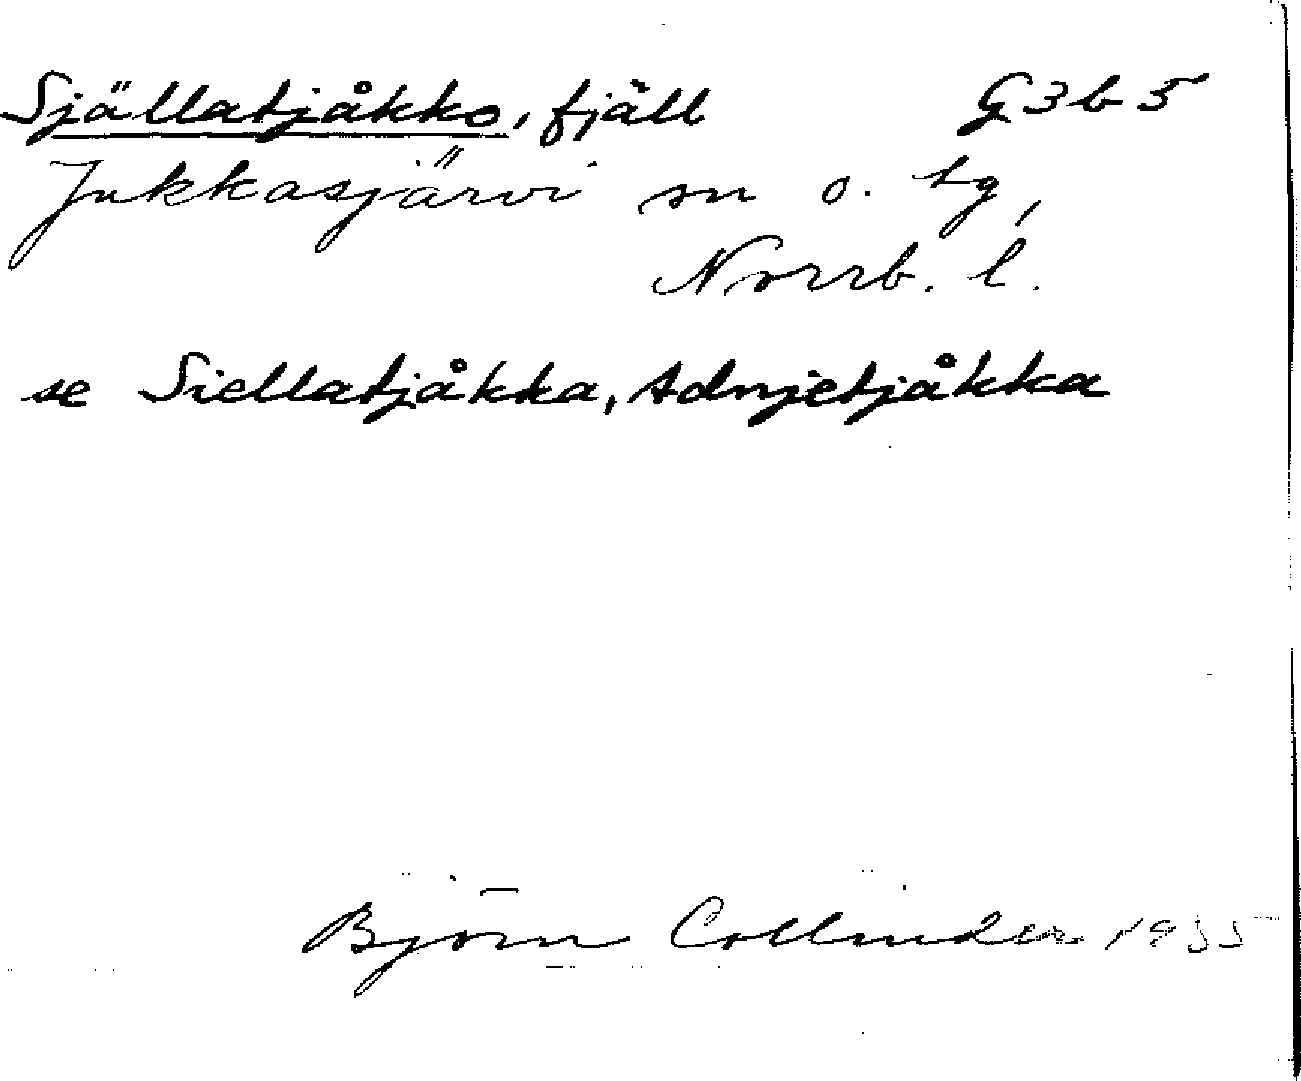 Själlatjåkko, fjäll G3b5
Jukkasjärvi sn o. tg,
Norrb. l.
se Siellatjåkka, Adnjetjåkka
Björn Collinder 1935